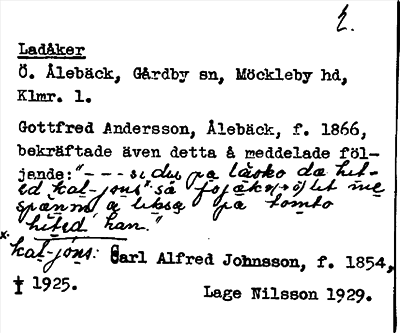 2.
Ladåker
Ö. Ålebäck, Gårdby sn, Möckleby hd,
Klmr. l.
Gottfred Andersson, Ålebäck, f. 1866,
bekräftade även detta å meddelade föl-
jande: "--- si du på låsko da het-
ed kal-jons" så
spänn a liksa på tomto
hited han."
x. kal-jons: Carl Alfred Johnsson, f. 1854,
† 1925.
Lage Nilsson 1929.